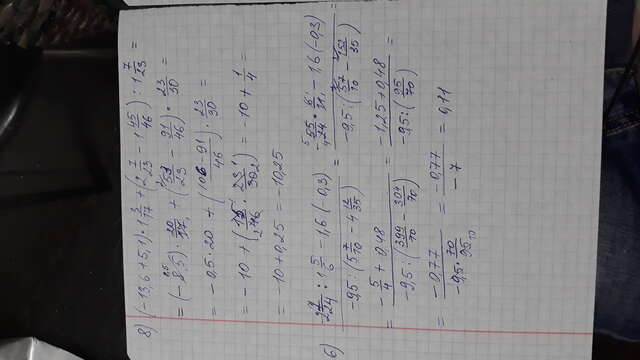 8) (-13,6 + 5,1) · 1 3/17 + (2 7/23 - 1 45/46) : 1 7/23 =
= (-8,5) · 20/17 + (53/23 - 91/46) · 23/30 =
= -0,5 · 20 + (106-91/46) · 23/30 =
= -10 + (15/46 · 23/30) = -10 + 1/4 =
= -10 + 0,25 = -10,25
6) 2 7/24 : 1 5/6 - 1,6 (-0,3) / -9,5 : (5 7/10 - 4 12/35) = -55/24 · 6/11 - 1,6 (-0,3) / -9,5 : (57/10 - 152/35) =
= -5/4 + 0,48 / -9,5 : (399/70 - 304/70) = -1,25 + 0,48 / -9,5 : (95/70) =
= -0,77 / -9,5 · 70/95 = -0,77 / -7 = 0,11